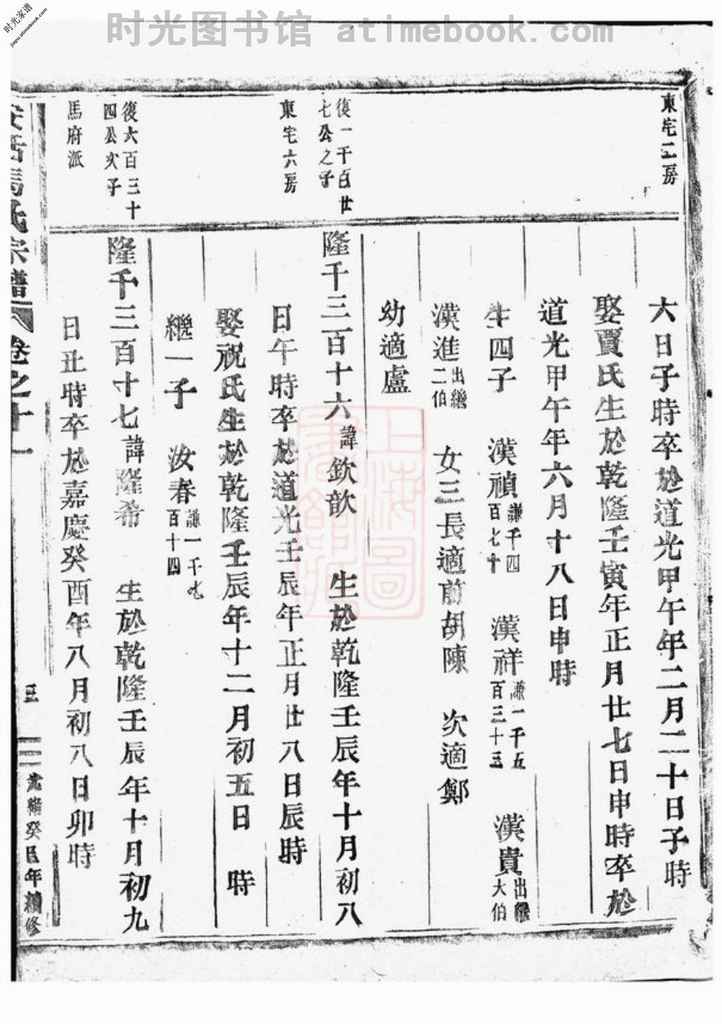 时光图书馆 atimebook.com
时光家谱
jiapu.atimebook.com
東宅二房
六日子時卒於道光甲午年二月二十日子時
娶賈氏生於乾隆壬寅年正月廿七日申時卒於
道光甲午年六月十八日申時
生四子 漢禎謙千四百七十 漢祥謙一千五百三十三 漢貴出繼大伯
漢進出繼二伯 女三長適前胡陳 次適鄭
幼適盧
復一千百廿七公之子
東宅六房
隆千三百十六諱欽歆 生於乾隆壬辰年十月初八
日午時卒於道光壬辰年正月廿八日辰時
娶祝氏生於乾隆壬辰年十二月初五日 時
繼一子 汝春謙一千百十四
復六百三十四公次子
馬府派
隆千三百十七諱隆希 生於乾隆壬辰年十月初九
日丑時卒於嘉慶癸酉年八月初八日卯時
馬氏宗譜 卷之十一
三
光緒癸巳年續修